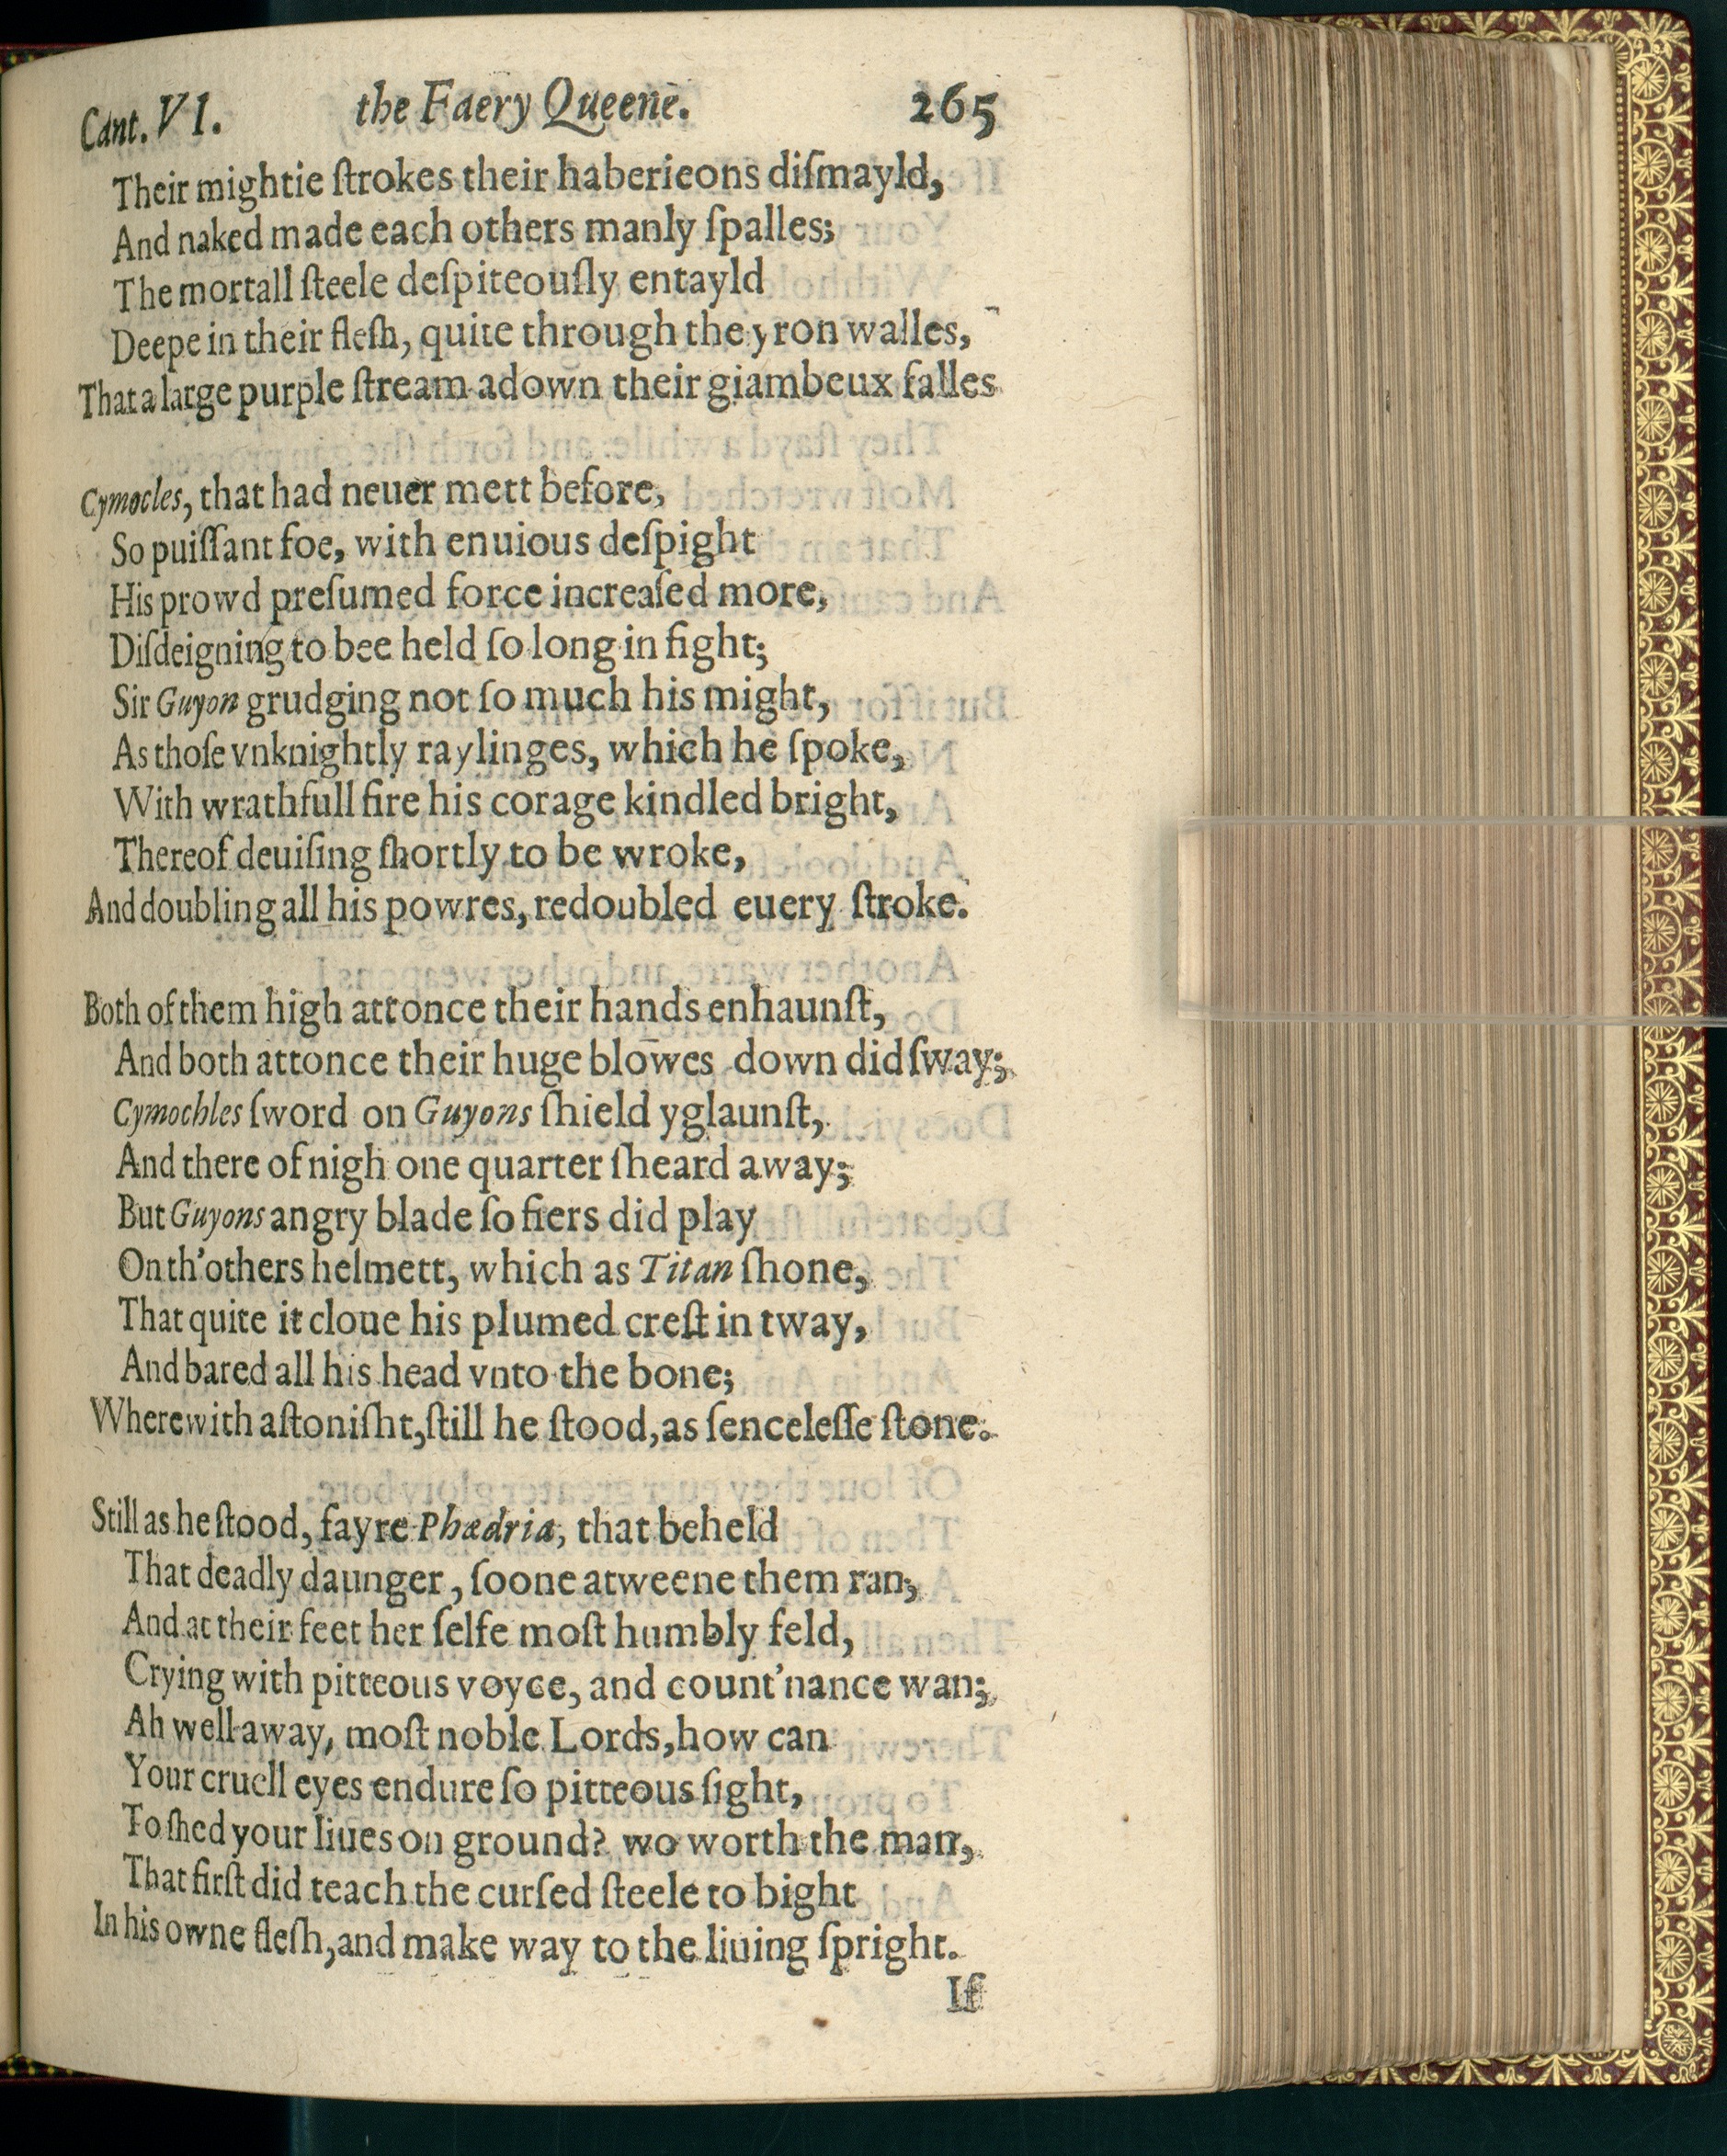 Cant. VI. the Faery Queene. 265
Their mightie ſtrokes their haberieons diſmayld,
And naked made each others manly ſpalles;
The mortall ſteele deſpiteouſly entayld
Deepe in their fleſh, quite through the yron walles,
That a large purple ſtream adown their giambeux falles
Cymocles, that had neuer mett before,
So puiſſant foe, with enuious deſpight
His prowd preſumed force increaſed more,
Diſdeigning to bee held ſo long in fight;
Sir Guyon grudging not ſo much his might,
As thoſe vnknightly raylinges, which he ſpoke,
With wrathfull fire his corage kindled bright,
Thereof deuiſing ſhortly to be wroke,
And doubling all his powres, redoubled euery ſtroke.
Both of them high attonce their hands enhaunſt,
And both attonce their huge blowes down did ſway;
Cymochles ſword on Guyons ſhield yglaunſt,
And there of nigh one quarter ſheard away;
But Guyons angry blade ſo fiers did play
On th'others helmett, which as Titan ſhone,
That quite it cloue his plumed creſt in tway,
And bared all his head vnto the bone;
Wherewith aſtoniſht, ſtill he ſtood, as ſenceleſſe ſtone.
Still as he ſtood, fayre Phædria, that beheld
That deadly daunger, ſoone atweene them ran;
And at their feet her ſelfe moſt humbly feld,
Crying with pitteous voyce, and count'nance wan;
Ah well away, moſt noble Lords, how can
Your cruell eyes endure ſo pitteous ſight,
To ſhed your liues on ground? wo worth the man,
That firſt did teach the curſed ſteele to bight
In his owne fleſh, and make way to the liuing ſpright.
If